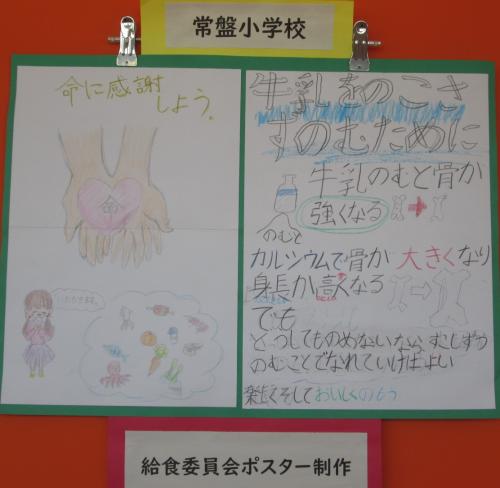 常盤小学校
命に感謝
しよう。
命
いただきます。
牛乳をのこさ
ずのむために
牛乳のむと骨が
強くなる
のむと
カルシウムで骨が大きくなり
身長が高くなる
でも
どうしてものめないなら、すこしずつ
のむことでなれていけばよい
楽しくそしておいしくのもう
給食委員会ポスター制作